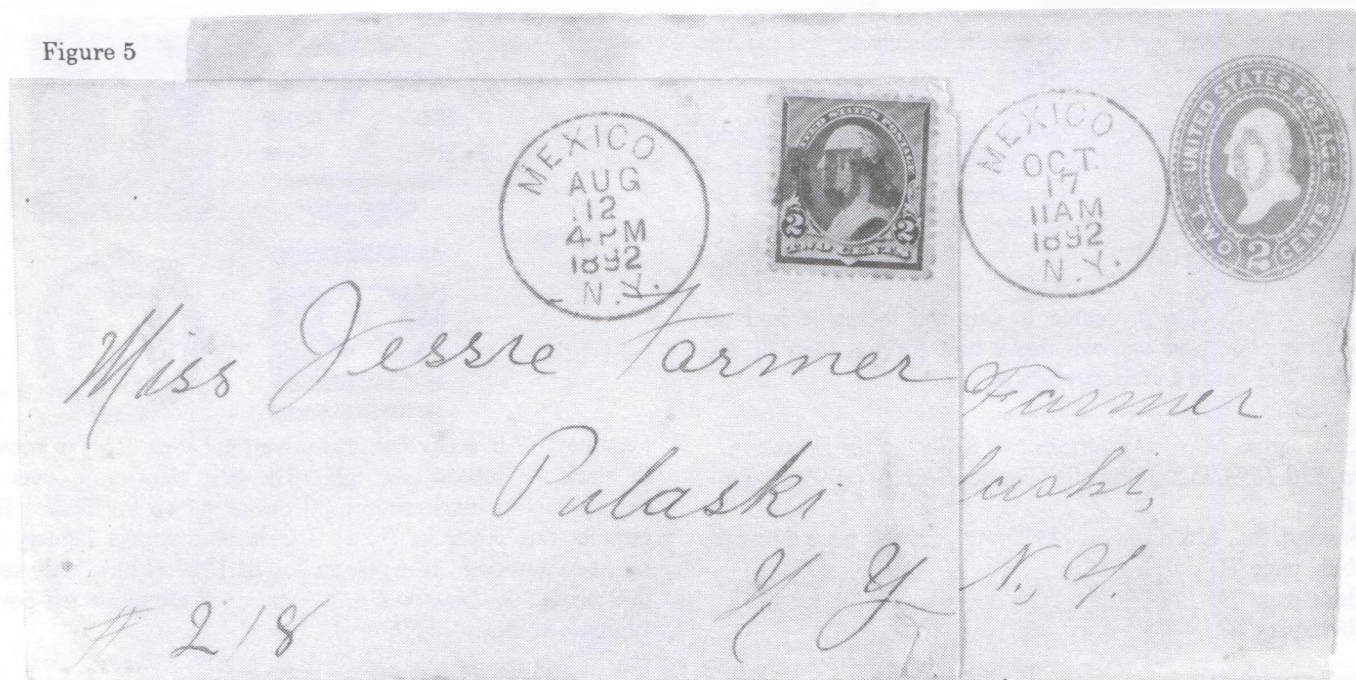 Figure 5
MEXICO
AUG
12
4PM
1892
N.Y.
UNITED STATES POSTAGE
2 2
TWO CENTS
MEXICO
OCT.
17
11AM
1892
N.Y.
UNITED STATES POSTAGE
TWO 2 CENTS
Miss Jessie Farmer
Pulaski
N Y
# 218
Farmer
laski,
N. Y.